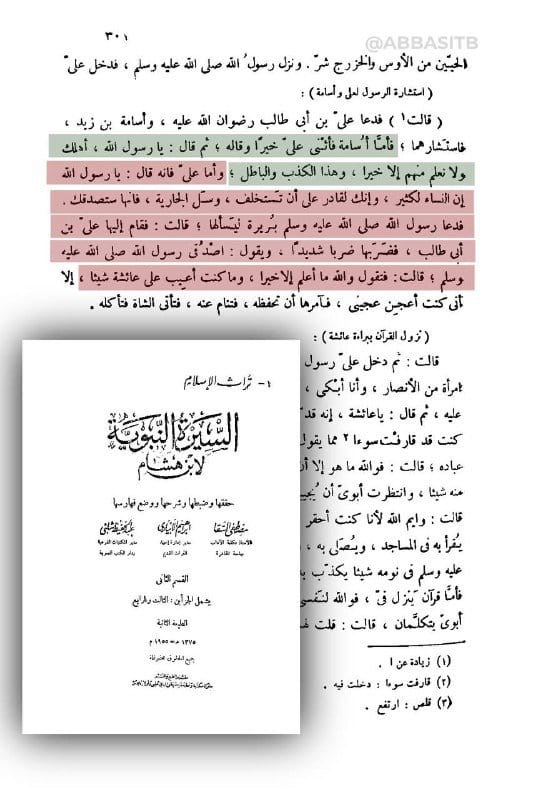 ٣٠١
@ABBASITB
الحيّين من الأوس والخزرج شرّ . ونزل رسولُ الله صلى الله عليه وسلم ، فدخل علىّ
( استشارة الرسول لعلى وأسامة ) :
( قالت١ ) فدعا علىّ بن أبى طالب رضوان الله عليه ، وأسامة بن زيد ،
فاستشارهما ؛ فأمَّا أُسامة فأثنْى علىّ خيرًا وقاله ؛ ثم قال : يا رسول الله ، أهلك
ولا نعلم منهم إلا خيرا ، وهذا الكذب والباطل ؛ وأما علىّ فانه قال : يا رسول الله
إن النساء لكثير ، وإنك لقادر على أن تَستخلف ، وسَل الجارية ، فانها ستصدقك .
فدعا رسول الله صلى الله عليه وسلم بُرَيرة ليَسألها ؛ قالت : فقام إليها علىّ بن
أبى طالب ، فضَرَبها ضربا شديدًا ، ويقول : اصْدُقى رسول الله صلى الله عليه
وسلم ؛ قالت : فتقول والله ما أعلم إلاخيرا ، وماكنت أعيب على عائشة شيئا ، إلا
أنى كنت أعجن عجينى ، فآمرها أن تحفظه ، فتنام عنه ، فتأتى الشاة فتأكله .
( نزول القرآن ببراءة عائشة ) :
قالت : ثم دخل علىّ رسول
امرأة من الأنصار ، وأنا أبْكى ،
عليه ، ثم قال : ياعائشة ، إنه قد
كنت قد قارفْت سوءا٢ مما يقول
عباده ؛ قالت : فوالله ما هو إلا أن
منه شيئا ، وانتظرت أبوىّ أن يُجيب
قالت : وايم الله لأنا كنت أحقر
يُقرأ به فى المساجد ، ويُصلَّى به ،
عليه وسلم فى نومه شيئا يكذّب به
فأمَّا قرآن يَنزل فىّ ، فوالله لنَفسى
أبوىّ يتكلَّمان ، قالت : قلت لهما
(١) زيادة عن ا .
(٢) قارفت سوءا : دخلت فيه .
(٣) قلص : ارتفع .
١- تراث الإسلام
السيرة النبوية
لابن هشام
حققها وضبطها وشرحها ووضع فهارسها
مصطفى السقا
إبراهيم الأبيارى
عبد الحفيظ شلبى
القسم الثانى
يشمل الجزأين : الثالث والرابع
الطبعة الثانية
١٣٧٥ هـ = ١٩٥٥ م